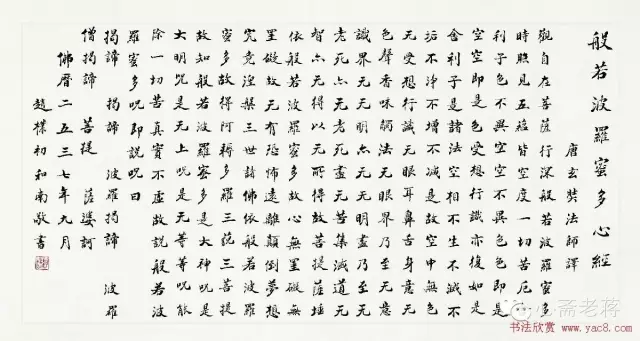 般若波羅蜜多心經
唐玄奘法師譯
觀自在菩薩行深般若波羅蜜多
時照見五蘊皆空度一切苦厄舍
利子色不異空空不異色色即是
空空即是色受想行識亦復如是
舍利子是諸法空相不生不滅不
垢不淨不增不減是故空中無色
无受想行識无眼耳鼻舌身意无
色聲香味觸法无眼界乃至无意
識界无无明亦无无明盡乃至无
老死亦无老死盡无苦集滅道无
智亦无得以无所得故菩提薩埵
依般若波羅蜜多故心無罣礙無
罣礙故无有恐怖遠離顛倒夢想
究竟涅槃三世諸佛依般若波羅
蜜多故得阿耨多羅三藐三菩提
故知般若波羅蜜多是大神咒是
大明咒是无上咒是无等等咒能
除一切苦真實不虛故說般若波
羅蜜多咒即說咒曰
揭諦 揭諦 波羅揭諦 波羅
僧揭諦 菩提 薩婆訶
佛曆二五三七年九月
趙樸初和南敬書
心斋老蒋
书法欣赏
www.yac8.com